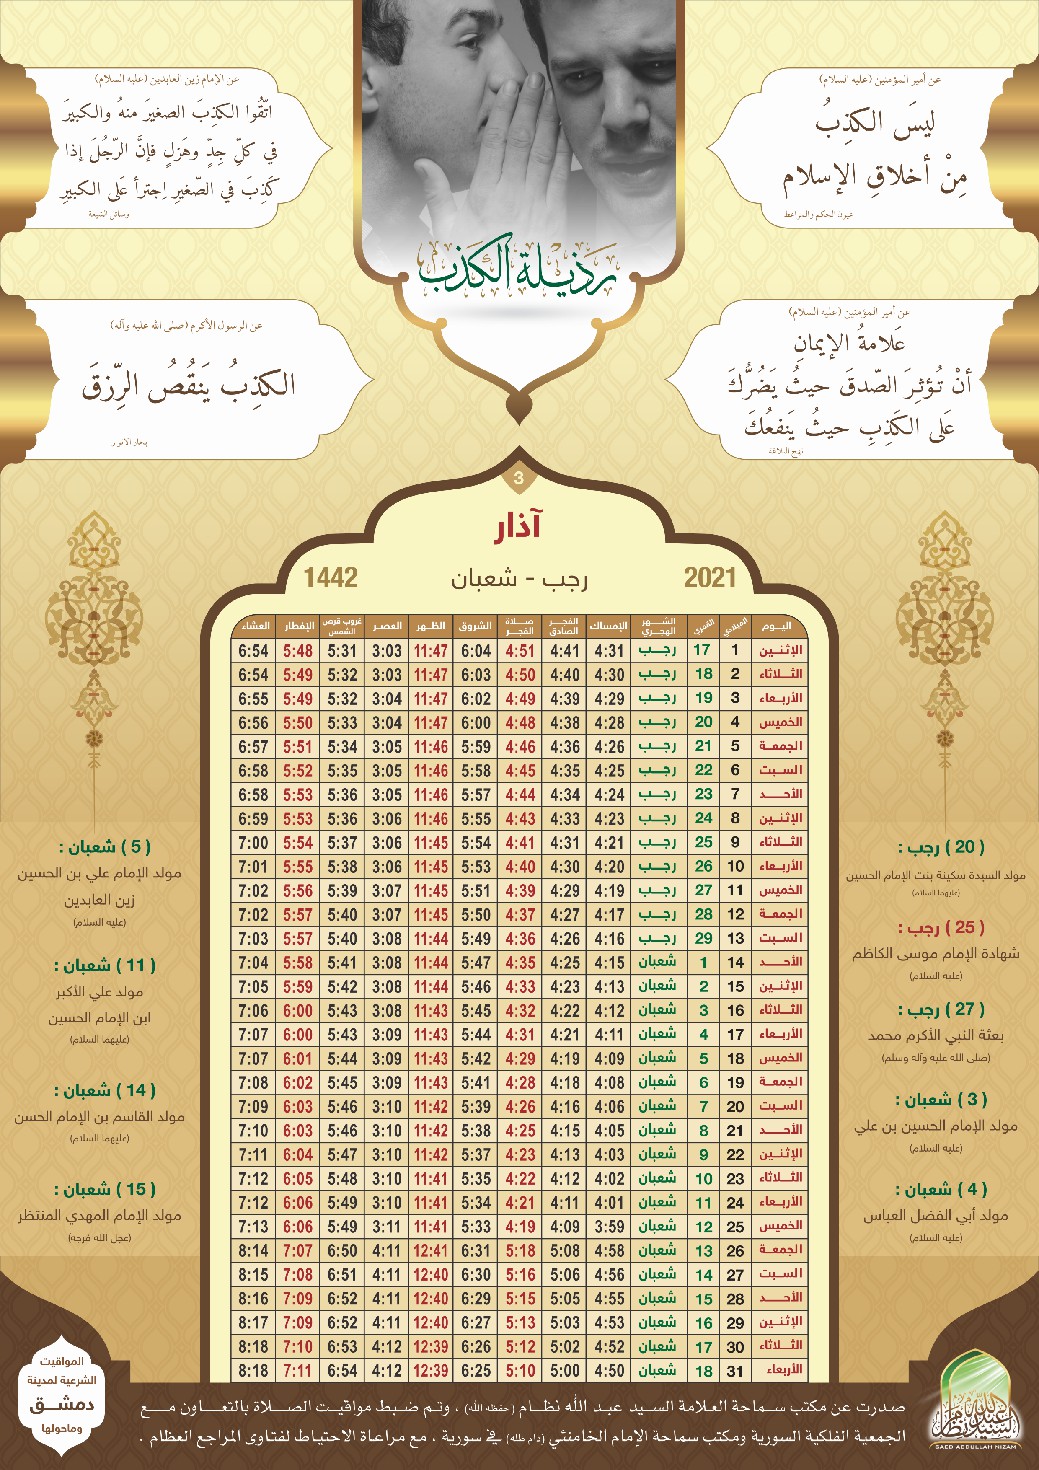 عن أمير المؤمنين (عليه السلام)
ليسَ الكذِبُ
مِنْ أخلاقِ الإسلام
عيون الحكم والمواعظ
عن الإمام زين العابدين (عليه السلام)
اتّقُوا الكذِبَ الصغيرَ منهُ والكبيرَ
في كلِّ جِدٍّ وهَزلٍ فإنَّ الرّجُلَ إذا
كَذِبَ في الصّغيرِ اِجترأ عَلى الكبيرِ
وسائل الشيعة
رذيلة الكذب
عن أمير المؤمنين (عليه السلام)
عَلامةُ الإيمانِ
أنْ تُؤثِرَ الصّدقَ حيثُ يَضُرُّكَ
عَلى الكَذِبِ حيثُ يَنفعُكَ
نهج البلاغة
عن الرسول الأكرم (صلى الله عليه وآله)
الكذِبُ يَنقُصُ الرِّزقَ
بحار الأنوار
3
آذار
2021 رجب - شعبان 1442
اليـوم الميلادي القمري الشـهر الهجري الإمساك الفجـر الصادق صـلاة الفجـر الشروق الظـهر العصـر غروب قرص الشمس الإفطار العشاء
الإثنـين 1 17 رجـب 4:31 4:41 4:51 6:04 11:47 3:03 5:31 5:48 6:54
الثـلاثاء 2 18 رجـب 4:30 4:40 4:50 6:03 11:47 3:03 5:32 5:49 6:54
الأربـعاء 3 19 رجـب 4:29 4:39 4:49 6:02 11:47 3:04 5:32 5:49 6:55
الخميس 4 20 رجـب 4:28 4:38 4:48 6:00 11:47 3:04 5:33 5:50 6:56
الجمعـة 5 21 رجـب 4:26 4:36 4:46 5:59 11:46 3:05 5:34 5:51 6:57
السـبت 6 22 رجـب 4:25 4:35 4:45 5:58 11:46 3:05 5:35 5:52 6:58
الأحــد 7 23 رجـب 4:24 4:34 4:44 5:57 11:46 3:05 5:36 5:53 6:58
الإثنـين 8 24 رجـب 4:23 4:33 4:43 5:55 11:46 3:06 5:36 5:53 6:59
الثـلاثاء 9 25 رجـب 4:21 4:31 4:41 5:54 11:45 3:06 5:37 5:54 7:00
الأربـعاء 10 26 رجـب 4:20 4:30 4:40 5:53 11:45 3:06 5:38 5:55 7:01
الخميس 11 27 رجـب 4:19 4:29 4:39 5:51 11:45 3:07 5:39 5:56 7:02
الجمعـة 12 28 رجـب 4:17 4:27 4:37 5:50 11:45 3:07 5:40 5:57 7:02
السـبت 13 29 رجـب 4:16 4:26 4:36 5:49 11:44 3:08 5:40 5:57 7:03
الأحــد 14 1 شعبان 4:15 4:25 4:35 5:47 11:44 3:08 5:41 5:58 7:04
الإثنـين 15 2 شعبان 4:13 4:23 4:33 5:46 11:44 3:08 5:42 5:59 7:05
الثـلاثاء 16 3 شعبان 4:12 4:22 4:32 5:45 11:43 3:08 5:43 6:00 7:06
الأربـعاء 17 4 شعبان 4:11 4:21 4:31 5:44 11:43 3:09 5:43 6:00 7:07
الخميس 18 5 شعبان 4:09 4:19 4:29 5:42 11:43 3:09 5:44 6:01 7:07
الجمعـة 19 6 شعبان 4:08 4:18 4:28 5:41 11:43 3:09 5:45 6:02 7:08
السـبت 20 7 شعبان 4:06 4:16 4:26 5:39 11:42 3:10 5:46 6:03 7:09
الأحــد 21 8 شعبان 4:05 4:15 4:25 5:38 11:42 3:10 5:46 6:03 7:10
الإثنـين 22 9 شعبان 4:03 4:13 4:23 5:37 11:42 3:10 5:47 6:04 7:11
الثـلاثاء 23 10 شعبان 4:02 4:12 4:22 5:35 11:41 3:10 5:48 6:05 7:12
الأربـعاء 24 11 شعبان 4:01 4:11 4:21 5:34 11:41 3:10 5:49 6:06 7:12
الخميس 25 12 شعبان 3:59 4:09 4:19 5:33 11:41 3:11 5:49 6:06 7:13
الجمعـة 26 13 شعبان 4:58 5:08 5:18 6:31 12:41 4:11 6:50 7:07 8:14
السـبت 27 14 شعبان 4:56 5:06 5:16 6:30 12:40 4:11 6:51 7:08 8:15
الأحــد 28 15 شعبان 4:55 5:05 5:15 6:29 12:40 4:11 6:52 7:09 8:16
الإثنـين 29 16 شعبان 4:53 5:03 5:13 6:27 12:40 4:11 6:52 7:09 8:17
الثـلاثاء 30 17 شعبان 4:52 5:02 5:12 6:26 12:39 4:12 6:53 7:10 8:18
الأربعاء 31 18 شعبان 4:50 5:00 5:10 6:25 12:39 4:12 6:54 7:11 8:18
( 20 ) رجب :
مولد السيدة سكينة بنت الإمام الحسين
(عليهما السلام)
( 25 ) رجب :
شهادة الإمام موسى الكاظم
(عليه السلام)
( 27 ) رجب :
بعثة النبي الأكرم محمد
(صلى الله عليه وآله وسلم)
( 3 ) شعبان :
مولد الإمام الحسين بن علي
(عليه السلام)
( 4 ) شعبان :
مولد أبي الفضل العباس
(عليه السلام)
( 5 ) شعبان :
مولد الإمام علي بن الحسين
زين العابدين
(عليه السلام)
( 11 ) شعبان :
مولد علي الأكبر
ابن الإمام الحسين
(عليهما السلام)
( 14 ) شعبان :
مولد القاسم بن الإمام الحسن
(عليهما السلام)
( 15 ) شعبان :
مولد الإمام المهدي المنتظر
(عجل الله فرجه)
صدرت عن مكتب سماحة العلامة السيد عبد الله نظام (حفظه الله) ، وتم ضبط مواقيت الصلاة بالتعـاون مـع
الجمعية الفلكية السورية ومكتب سماحة الإمام الخامنئي (دام ظله) في سورية ، مع مراعاة الاحتياط لفتاوى المراجع العظام .
المواقيت
الشرعية لمدينة
دمشـق
وماحولها
السيد عبد الله نظام
SAED ABDULLAH NIZAM